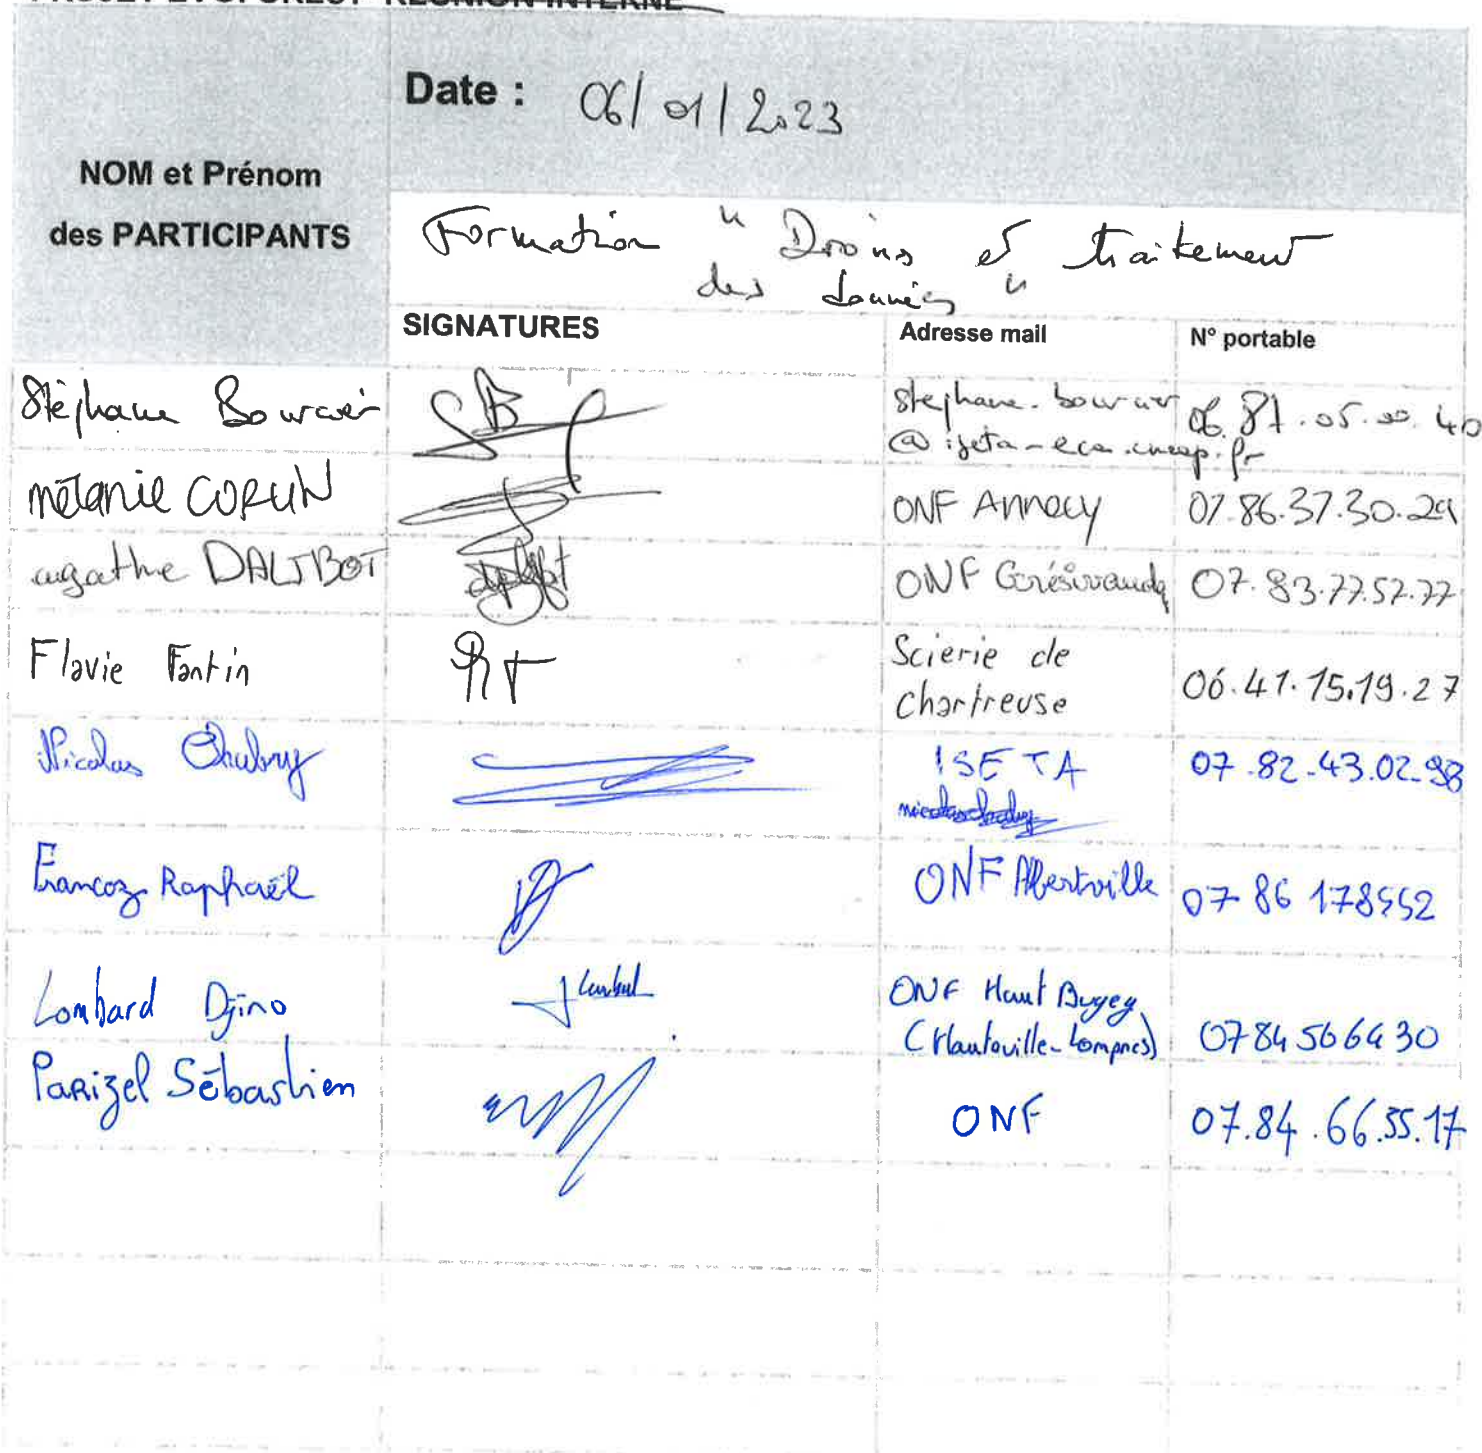 REUNION INTERNE
Date : 06/01/2023
NOM et Prénom
des PARTICIPANTS
Formation " Drones et traitement
des données "
SIGNATURES
Adresse mail
N° portable
Stéphane Bourcier
SB
stephane.bourcier
@iseta-eca.cneap.fr
06.87.05.00.40
mélanie CORLIN
ONF Annecy
07.86.37.30.29
agathe DALTBOT
ONF Grésivaudan
07.83.77.57.77
Flavie Fantin
Scierie de
chartreuse
06.41.15.19.27
Nicolas Chubry
ISETA
07.82.43.02.98
Francoz Raphaël
ONF Albertville
07 86 178552
Lombard Djino
Lombard
ONF Haut Bugey
(Hauteville-Lompnes)
0784566430
Parizel Sébastien
ONF
07.84.66.55.17